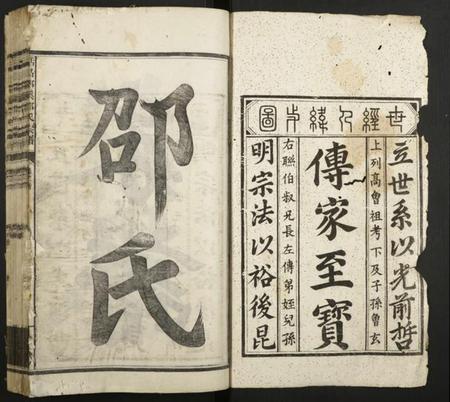 世經人緯之圖
立世系以光前哲
上列高曾祖考下及子孫曾玄
傳家至寶
右聯伯叔兄長左傳弟姪兒孫
明宗法以裕後昆
邵氏